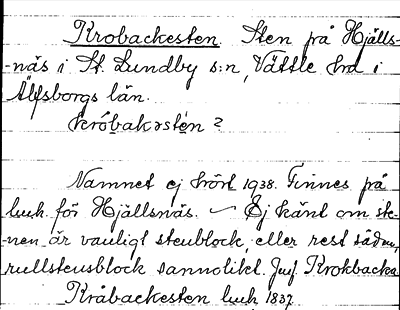 Krobackesten. Sten på Hjälls-
-näs i St. Lundby s:n, Vättle hrd i
Älfsborgs län.
króbakəstèn?
Namnet ej hört 1938. Finnes på
huk för Hjällsnäs. – Ej känt om ste-
nen är vanligt stenblock, eller rest sådan,
rullstensblock sannolikt. Jmf. Krokbacka
Kråbackesten huk 1837.